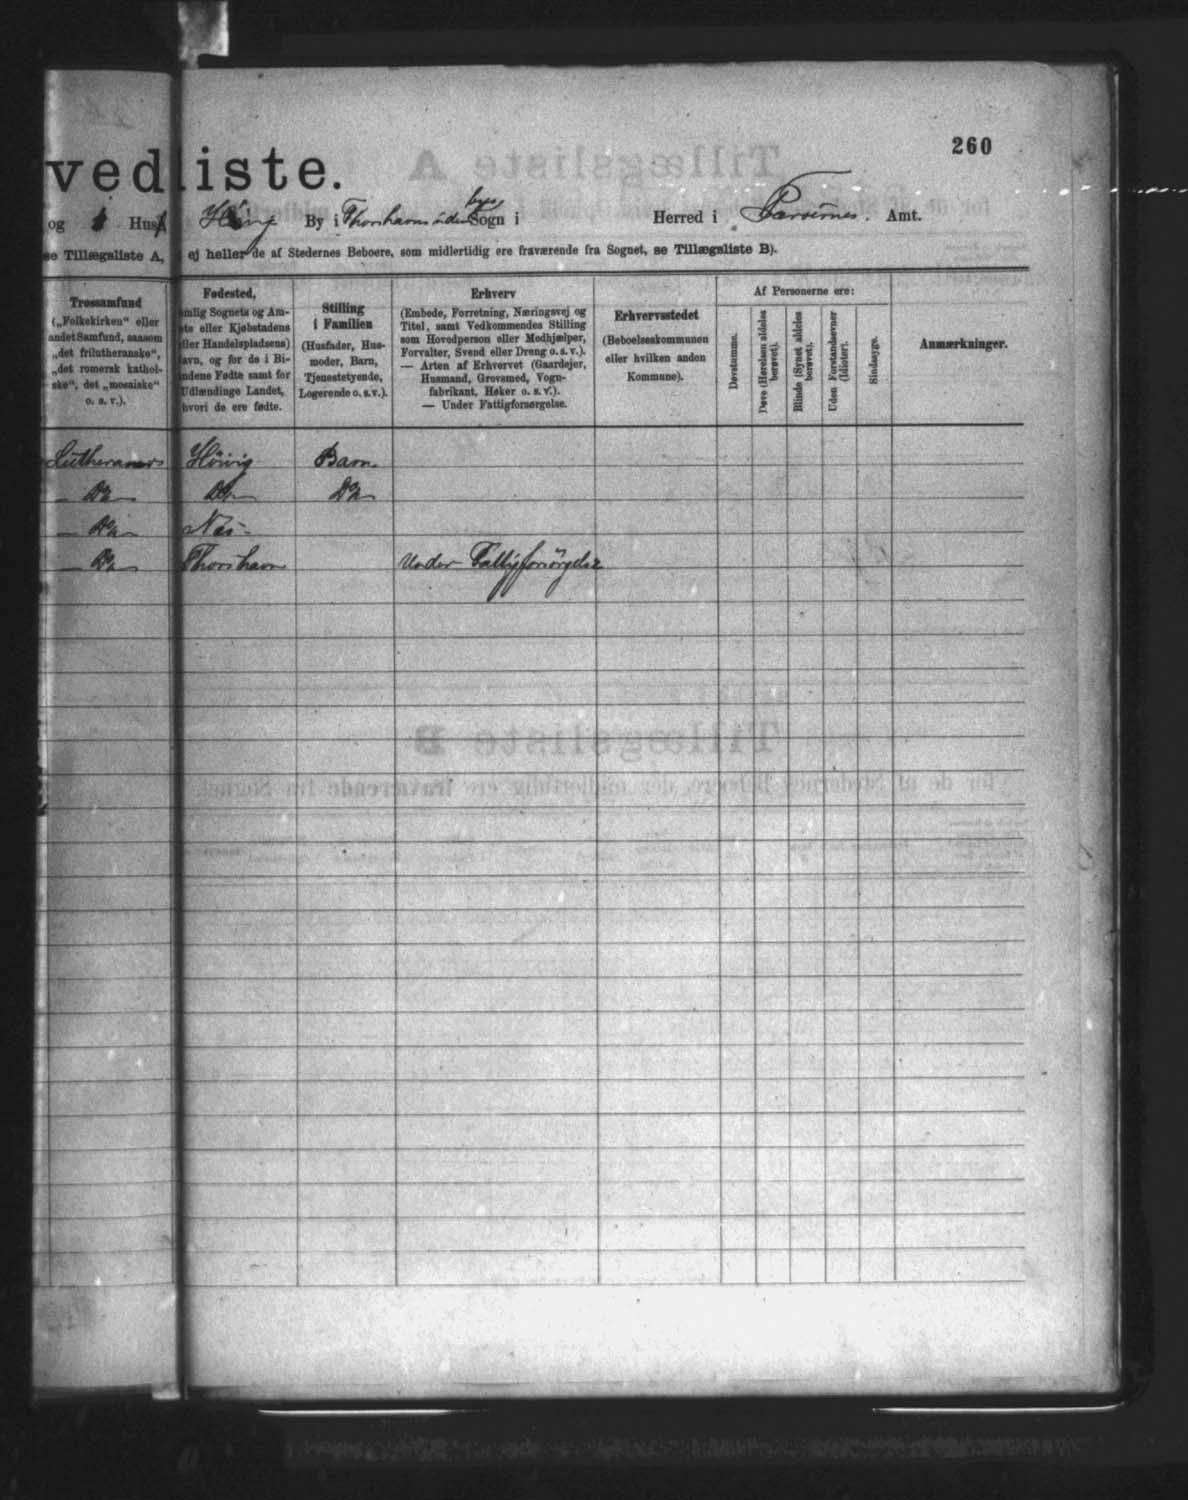 260
vedliste.
og 1 Hus Høivig By i Thorshavns uden bys Sogn i Herred i Færøernes. Amt.
se Tillægsliste A, ej heller de af Stedernes Beboere, som midlertidig ere fraværende fra Sognet, se Tillægsliste B).
Trossamfund
(„Folkekirken“ eller
andet Samfund, saasom
„det frilutheranske“,
„det romersk kathol-
ske“, det „mosaiske“
o. s. v.).
Fødested,
nemlig Sognets og Am-
ets eller Kjøbstadens
eller Handelspladsens)
Navn, og for de i Bi-
landene Fødte samt for
Udlændinge Landet,
hvori de ere fødte.
Stilling
i Familien
(Husfader, Hus-
moder, Barn,
Tjenestetyende,
Logerende o. s. v.).
Erhverv
(Embede, Forretning, Næringsvej og
Titel, samt Vedkommendes Stilling
som Hovedperson eller Medhjælper,
Forvalter, Svend eller Dreng o. s. v.).
— Arten af Erhvervet (Gaardejer,
Husmand, Grovsmed, Vogn-
fabrikant, Høker o. s. v.).
— Under Fattigforsørgelse.
Erhvervsstedet
(Beboelseskommunen
eller hvilken anden
Kommune).
Af Personerne ere:
Døvstumme.
Døve (Hørelsen aldeles
berøvet).
Blinde (Synet aldeles
berøvet).
Uden Forstandsevner
(Idioter).
Sindssyge.
Anmærkninger.
Lutheraner Høivig Barn
— Do — Do — Do —
— Do — Næs
— Do — Thorshavn Under Fattigforsørgelse
Tillægsliste A
Tillægsliste B
for de af Stedernes Beboere, der midlertidig ere fraværende fra Sognet.